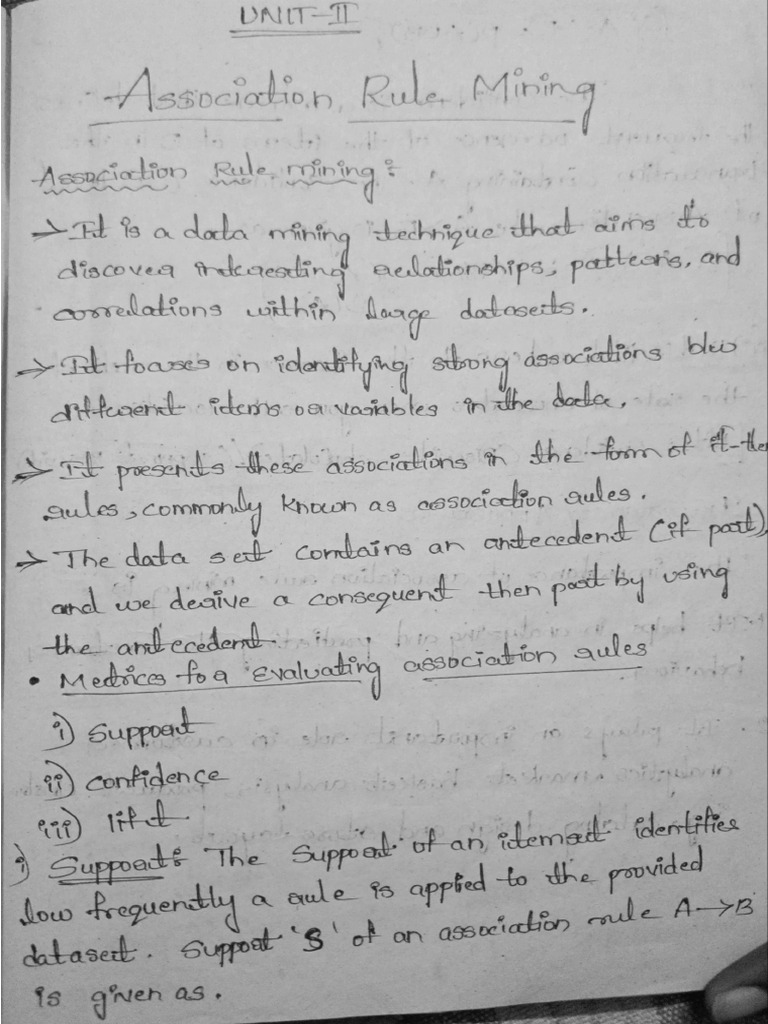 UNIT-II
Association Rule Mining
Association Rule mining:
→ It is a data mining technique that aims to
discover interesting relationships, patterns, and
correlations within large datasets.
→ It focuses on identifying strong associations b/w
different items or variables in the data.
→ It presents these associations in the form of if-then
rules, commonly known as association rules.
→ The data set contains an antecedent (if part),
and we derive a consequent then part by using
the antecedent.
• Metrices for Evaluating association rules
i) Support
ii) confidence
iii) lift
i) Support: The Support of an itemset identifies
how frequently a rule is applied to the provided
dataset. Support 'S' of an association rule A→B
is given as.